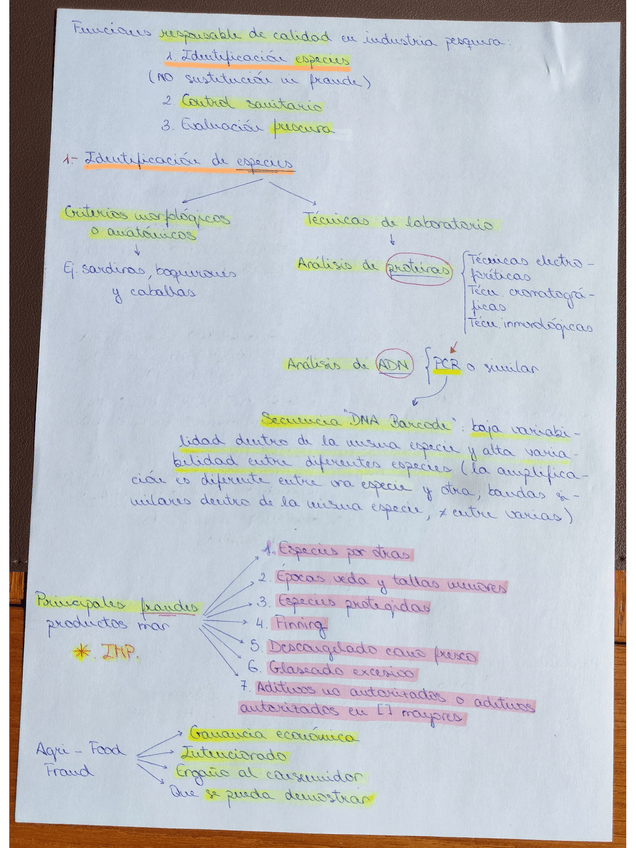 Funciones responsable de calidad en industria pesquera.
1. Identificación especies
(NO sustitución ni fraude)
2. Control sanitario
3. Evaluación frescura
1.- Identificación de especies
Criterios morfológicos
o anatómicos
Ej. sardinas, boquerones
y caballas
Técnicas de laboratorio
Análisis de proteínas
Técnicas electro-
foréticas
Técn cromatográ-
ficas
Técn inmnológicas
Análisis de ADN
PCR o similar
Secuencia "DNA Barcode": baja variabi-
lidad dentro de la misma especie y alta varia-
bilidad entre diferentes especies (la amplifica-
ción es diferente entre una especie y otra, bandas si-
milares dentro de la misma especie, ≠ entre varias)
Principales fraudes
productos mar
* . IMP.
1. Especies por otras
2. Épocas veda y tallas menores
3. Especies protegidas
4. Finning
5. Descongelado como fresco
6. Glaseado excesivo
7. Aditivos no autorizados o aditivos
autorizados en [] mayores
Agri-Food
Fraud
Ganancia económica
Intencionado
Engaño al consumidor
Que se pueda demostrar